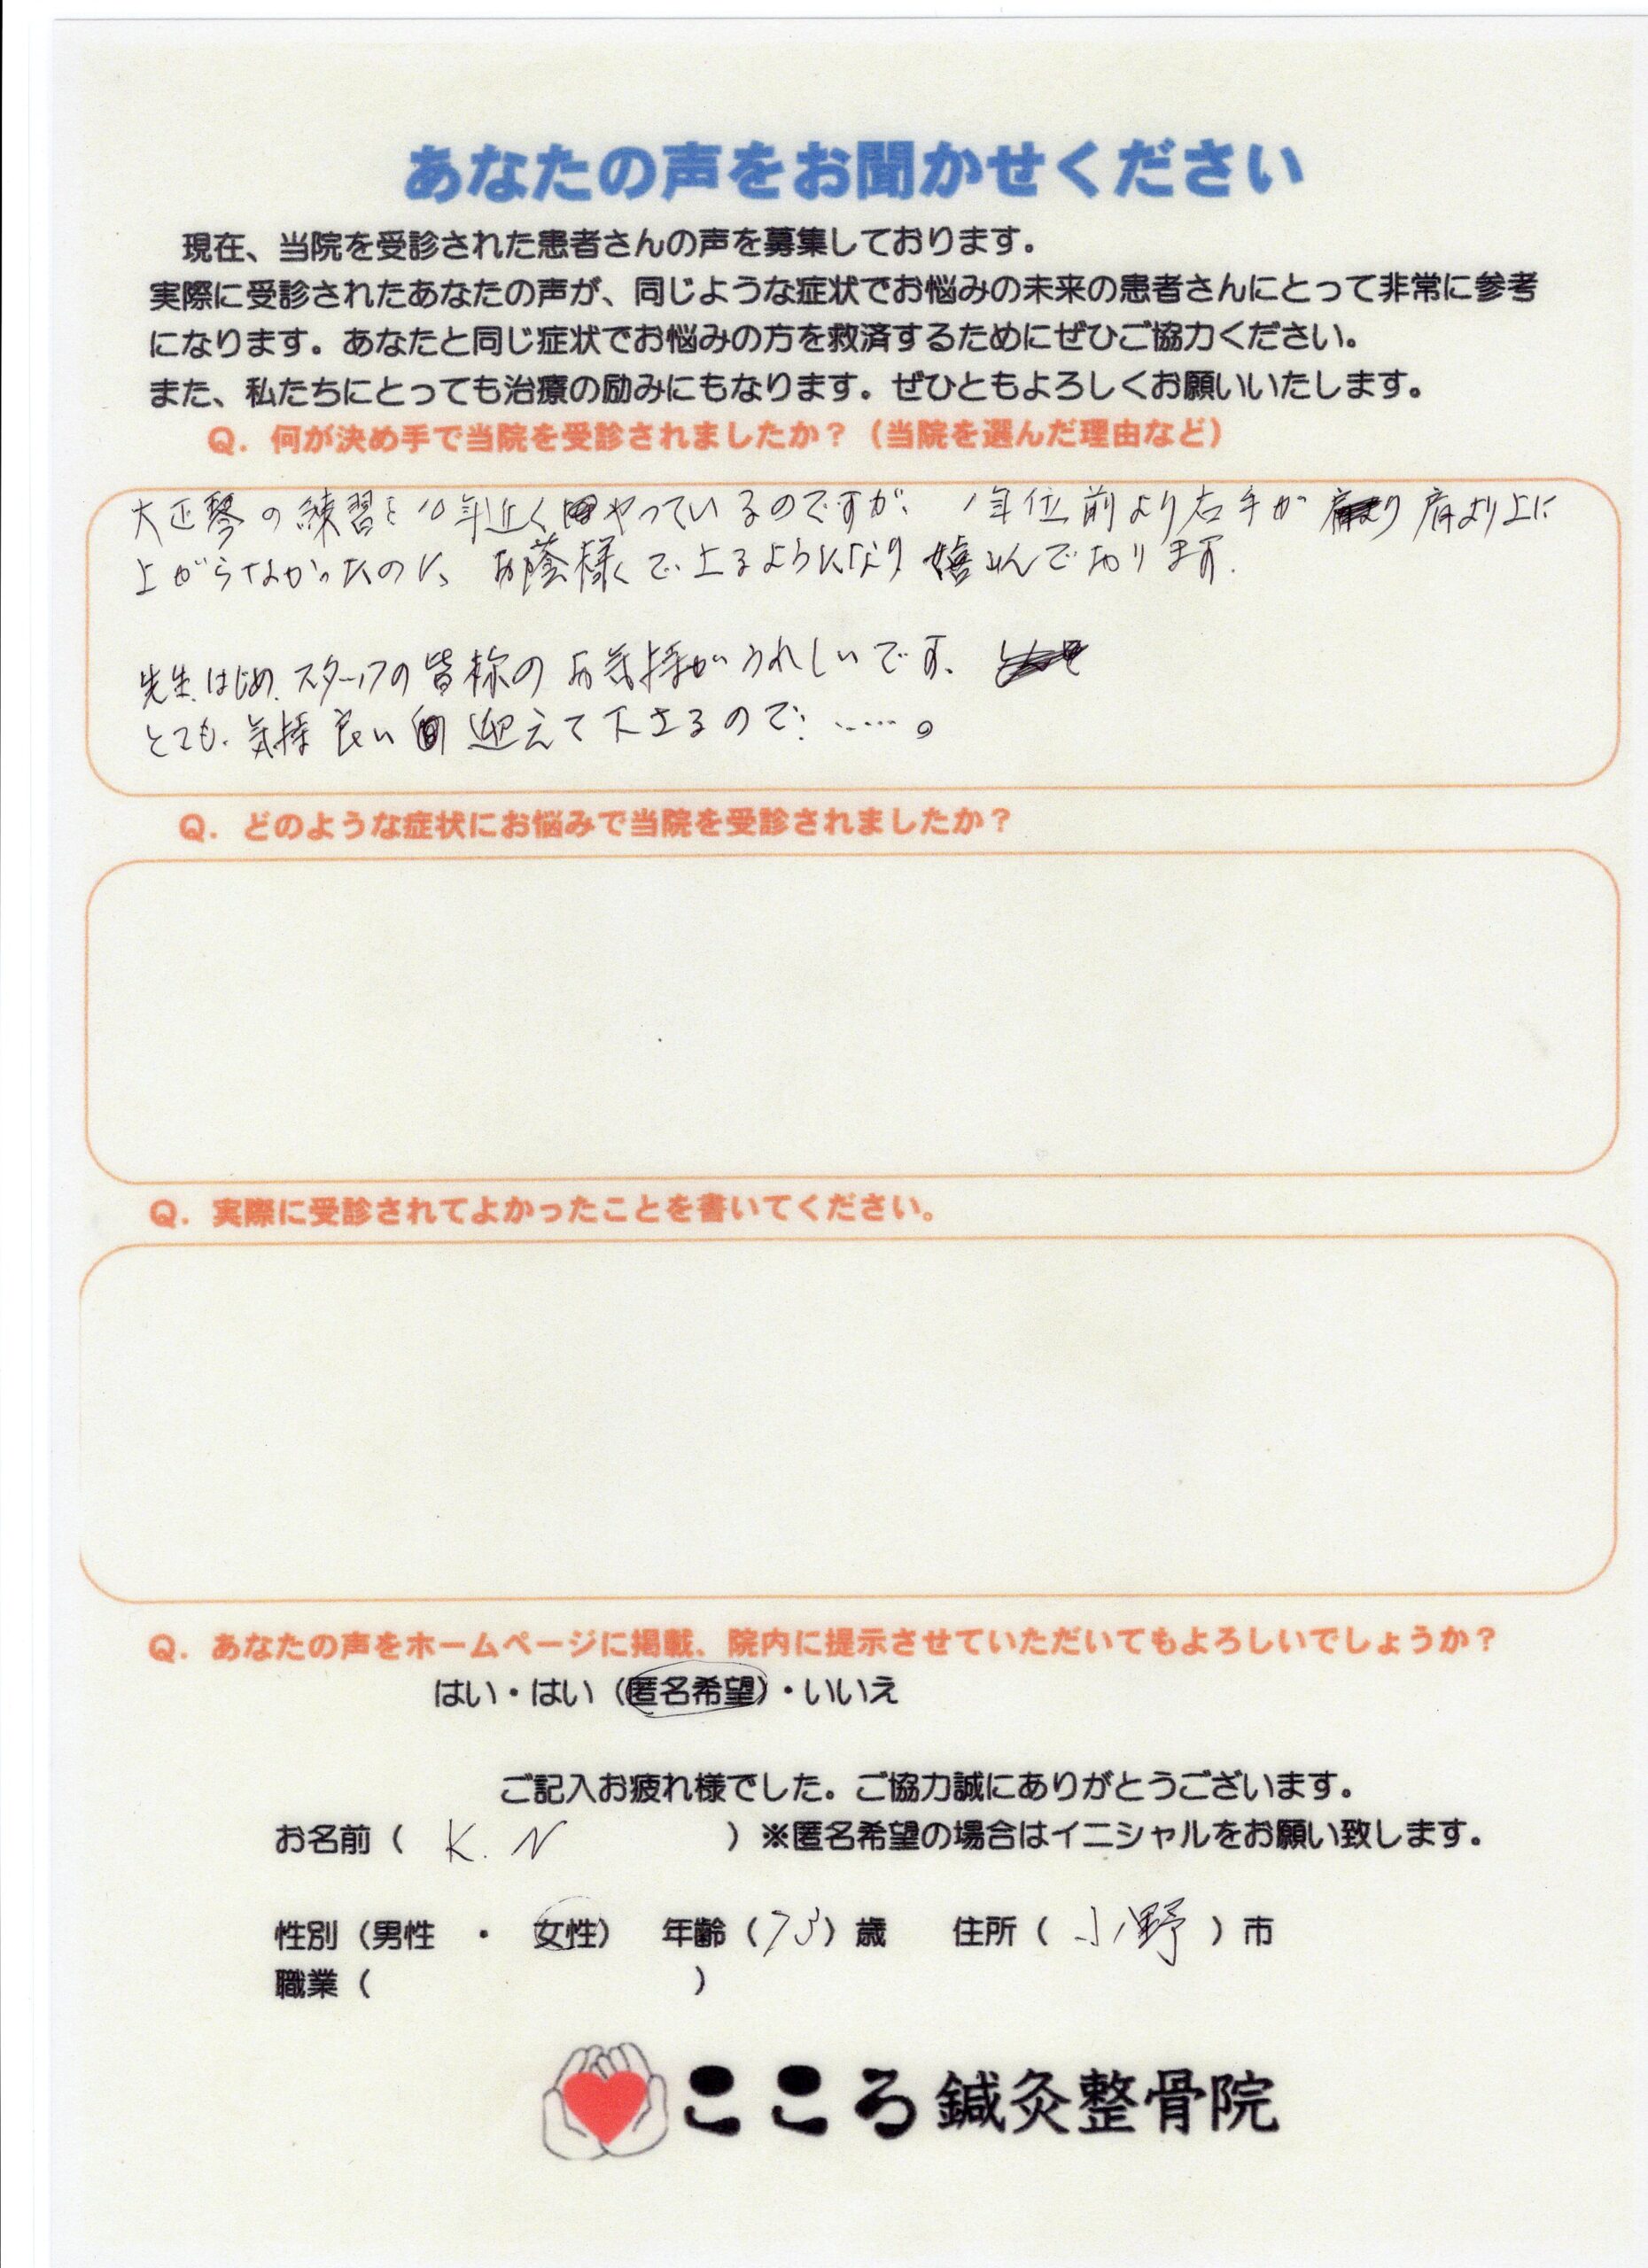 あなたの声をお聞かせください
現在、当院を受診された患者さんの声を募集しております。
実際に受診されたあなたの声が、同じような症状でお悩みの未来の患者さんにとって非常に参考
になります。あなたと同じ症状でお悩みの方を救済するためにぜひご協力ください。
また、私たちにとっても治療の励みにもなります。ぜひともよろしくお願いいたします。
Q. 何が決め手で当院を受診されましたか？（当院を選んだ理由など）
大正琴の練習を10年近くやっているのですが、1年位前より右手が肩より上に
上がらなかったのに、お蔭様で、上るようになり嬉しんでおります.
先生はじめ、スタッフの皆様のお気持がうれしいです、
とても、気持良い迎えて下さるので、……。
Q. どのような症状にお悩みで当院を受診されましたか？
Q. 実際に受診されてよかったことを書いてください。
Q. あなたの声をホームページに掲載、院内に提示させていただいてもよろしいでしょうか？
はい・はい（匿名希望）・いいえ
ご記入お疲れ様でした。ご協力誠にありがとうございます。
お名前（ K.N ）※匿名希望の場合はイニシャルをお願い致します。
性別（男性 ・ 女性） 年齢（73）歳 住所（ 小野 ）市
職業（ ）
こころ鍼灸整骨院